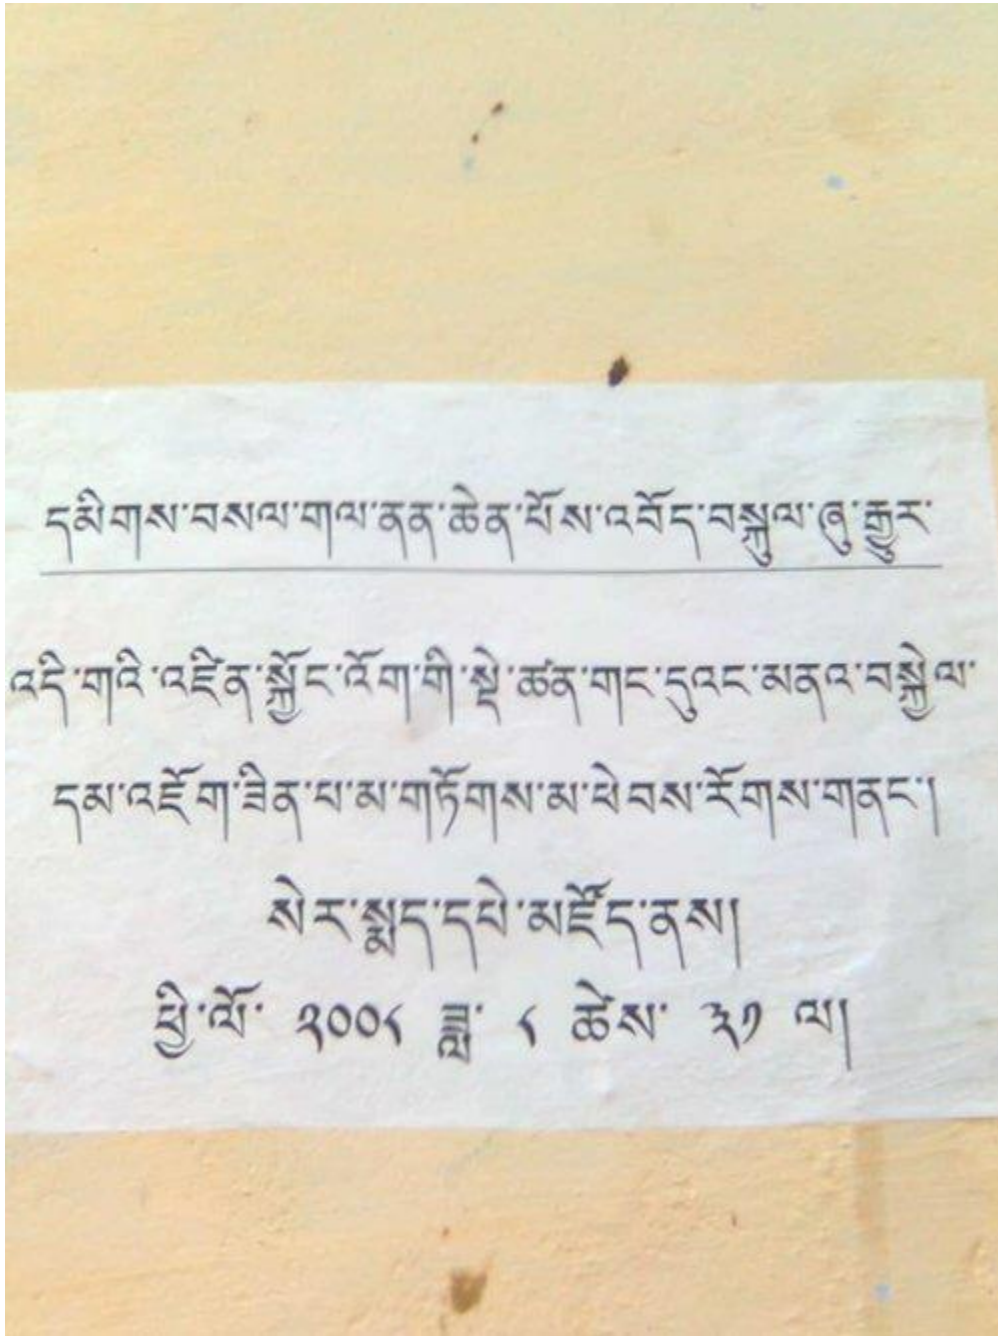 དམིགས་བསལ་གལ་ནན་ཆེན་པོས་འབོད་བསྐུལ་ཞུ་རྒྱུར་
འདི་གའི་འཛིན་སྐྱོང་འོག་གི་སྡེ་ཚན་གང་དུའང་མནའ་བསྐྱེལ་
དམ་འཇོག་ཟིན་པ་མ་གཏོགས་མ་ཕེབས་རོགས་གནང་།
སེར་སྨད་དཔེ་མཛོད་ནས།
ཕྱི་ལོ་ ༢༠༠༨ ཟླ་ ༨ ཚེས་ ༣༡ ལ།